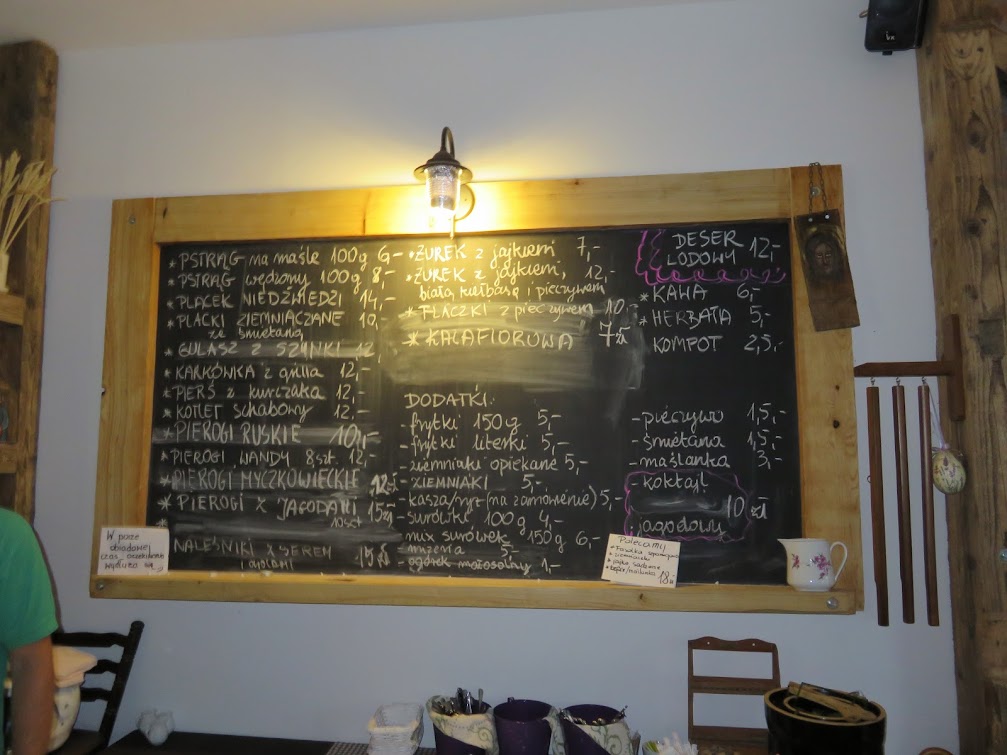 * PSTRĄG na maśle 100g 6,-
* PSTRĄG wędzony 100g 8,-
* PLACEK NIEDŹWIEDZI 14,-
* PLACKI ZIEMNIACZANE 10,-
ze śmietaną
* GULASZ Z SZYNKI 12,-
* KARKÓWKA z grilla 12,-
* PIERŚ z kurczaka 12,-
* KOTLET schabowy 12,-
* PIEROGI RUSKIE 10,-
* PIEROGI WANDY 8szt. 12,-
* PIEROGI MYCZKOWIECKIE 12zł
* PIEROGI Z JAGODAMI 15zł
10szt
*
NALEŚNIKI Z SEREM 15zł
i
* ŻUREK z jajkiem 7,-
* ŻUREK z jajkiem, 12,-
białą kiełbasą i pieczywem
* FLACZKI z pieczywem 10,-
* KALAFIOROWA 7zł
DODATKI:
- frytki 150g 5,-
- frytki literki 5,-
- ziemniaki opiekane 5,-
- ZIEMNIAKI 5,-
- kasza/ryż (na zamówienie) 5,-
- surówki 100g 4,-
- mix surówek 150g 6,-
- mizeria 5,-
- ogórek małosolny 1,-
DESER 12,-
LODOWY
* KAWA 6,-
* HERBATA 5,-
KOMPOT 2,5,-
- pieczywo 1,5,-
- śmietana 1,5,-
- maślanka 3,-
- koktajl
10 zł
jagodowy
W porze
obiadowej
czas oczekiwania
wydłuża się
Polecamy
* ziemniaki
* jajko sadzone
* kefir/maślanka 18zł